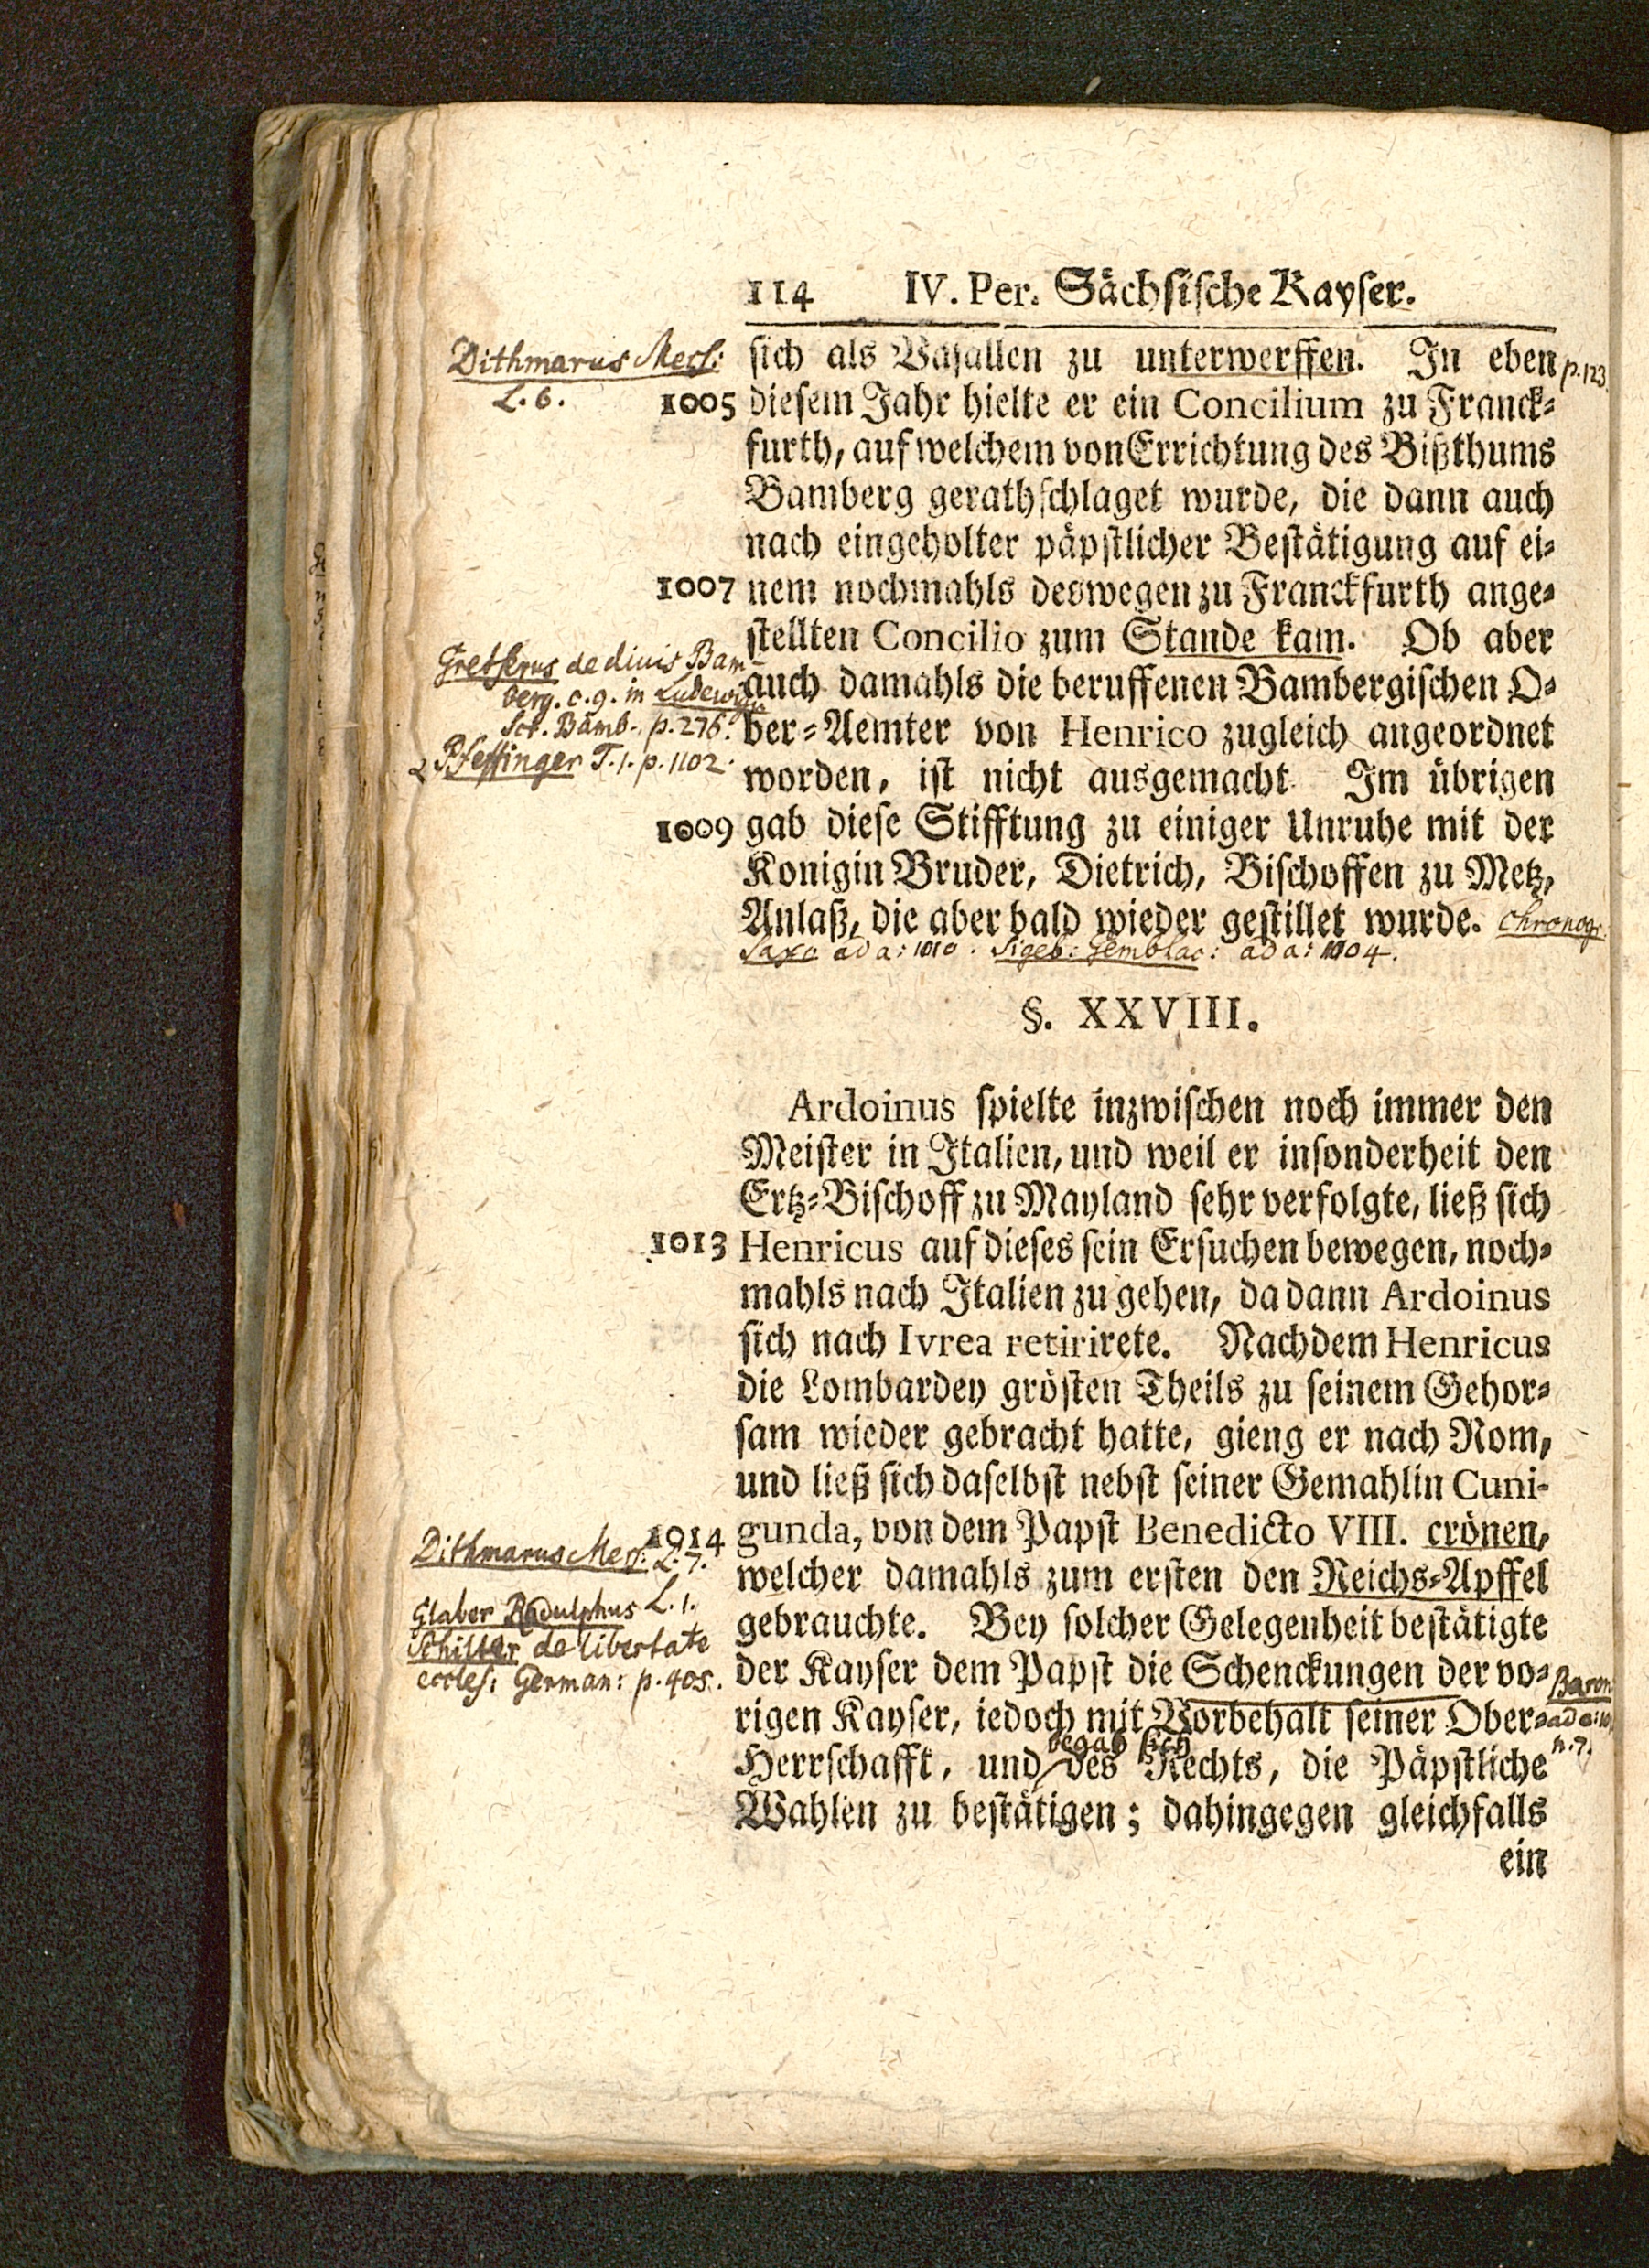 114 IV. Per. Sächsische Kayser.
Dithmarus Mers:
L. 6.
sich als Vasallen zu unterwerffen. In eben
p. 123.
1005 diesem Jahr hielte er ein Concilium zu Franck-
furth, auf welchem von Errichtung des Bißthums
Bamberg gerathschlaget wurde, die dann auch
nach eingeholter päpstlicher Bestätigung auf ei-
1007 nem nochmahls deswegen zu Franckfurth ange-
stellten Concilio zum Stande kam. Ob aber
Gretserus de divis Bam-
berg. c. 9. in Ludewigii
Scr. Bamb. p. 276.
& Pfeffinger T. 1. p. 1102.
auch damahls die beruffenen Bambergischen O-
ber-Aemter von Henrico zugleich angeordnet
worden, ist nicht ausgemacht. Im übrigen
1009 gab diese Stifftung zu einiger Unruhe mit der
Konigin Bruder, Dietrich, Bischoffen zu Metz,
Anlaß, die aber bald wieder gestillet wurde. Chronogr.
Saxo ad a: 1010. Sigeb: Gemblac: ad a: 1004.
§. XXVIII.
Ardoinus spielte inzwischen noch immer den
Meister in Italien, und weil er insonderheit den
Ertz-Bischoff zu Mayland sehr verfolgte, ließ sich
1013 Henricus auf dieses sein Ersuchen bewegen, noch-
mahls nach Italien zu gehen, da dann Ardoinus
sich nach Ivrea retirirete. Nachdem Henricus
die Lombardey grösten Theils zu seinem Gehor-
sam wieder gebracht hatte, gieng er nach Rom,
und ließ sich daselbst nebst seiner Gemahlin Cuni-
1014 gunda, von dem Papst Benedicto VIII. crönen,
Dithmarus Mers: L. 7.
Glaber Radulphus L. 1.
Schilter de libertate
eccles: German: p. 405.
welcher damahls zum ersten den Reichs-Apffel
gebrauchte. Bey solcher Gelegenheit bestätigte
der Kayser dem Papst die Schenckungen der vo-
Baron:
rigen Kayser, iedoch mit Vorbehalt seiner Ober-
ad a:
n. 7.
begab sich
Herrschafft, und des Rechts, die Päpstliche
Wahlen zu bestätigen; dahingegen gleichfalls
ein